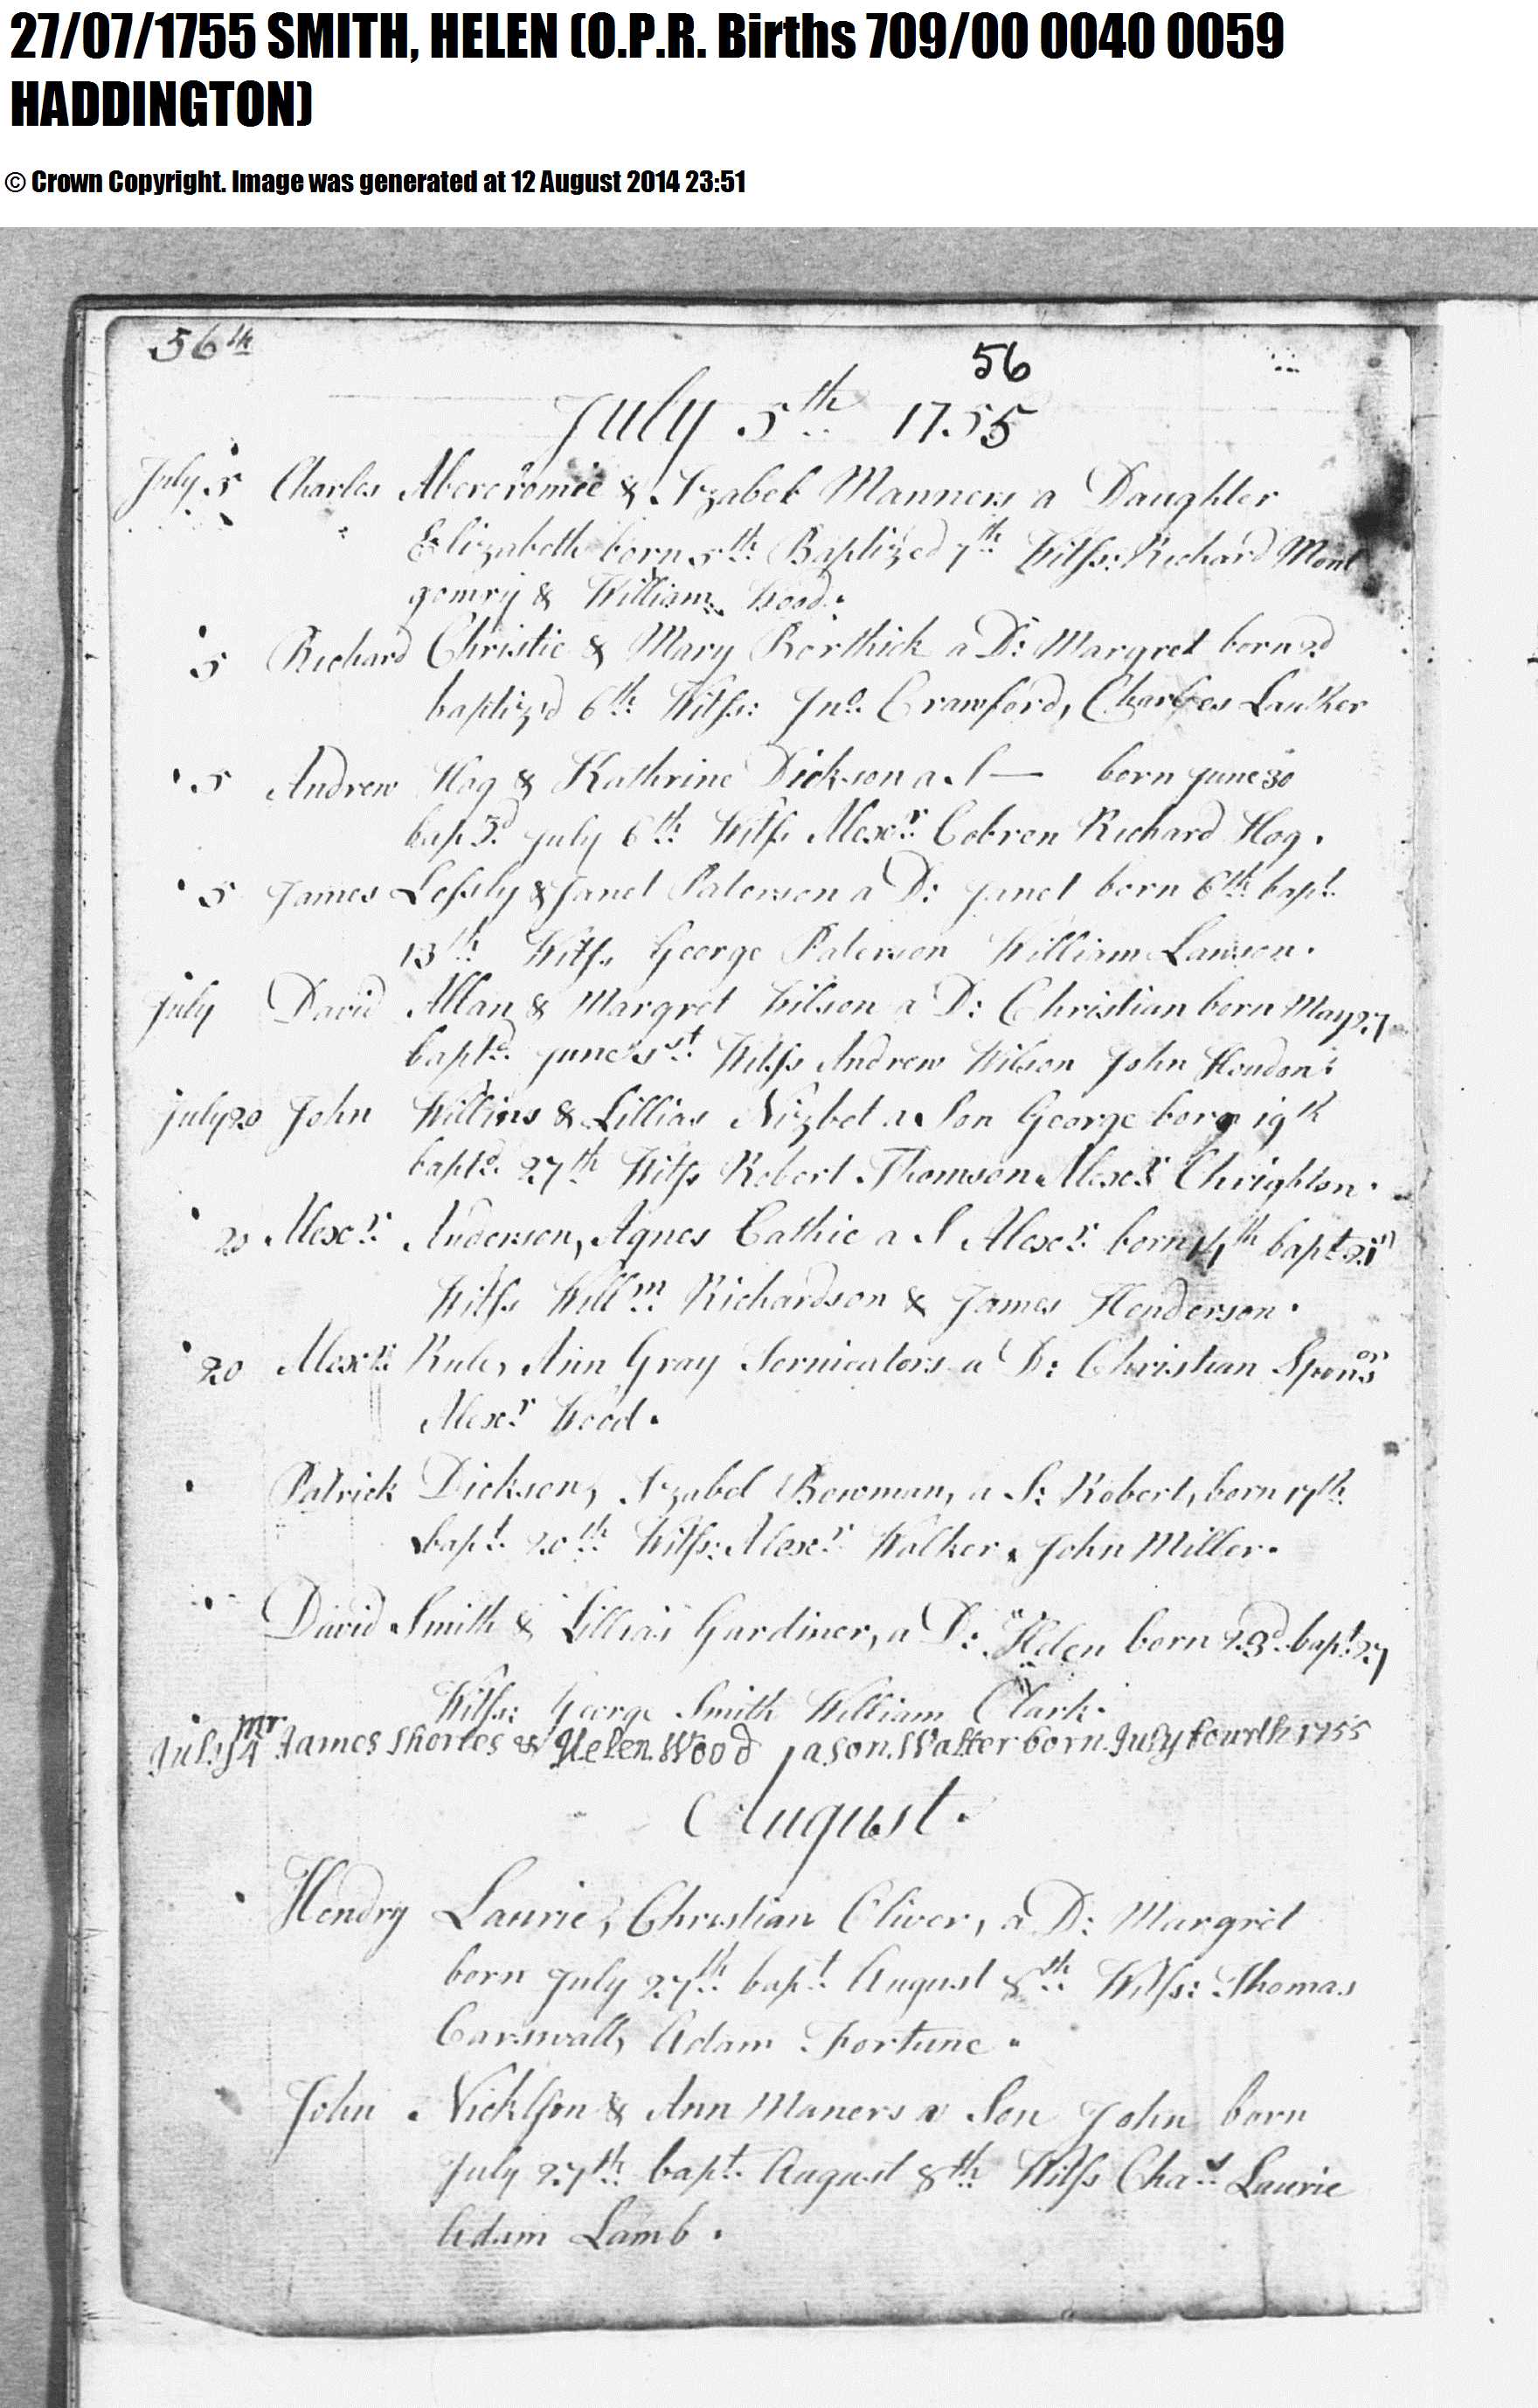 27/07/1755 SMITH, HELEN (O.P.R. Births 709/00 0040 0059
HADDINGTON)
© Crown Copyright. Image was generated at 12 August 2014 23:51
56th
56
July 5th 1755
July 5 Charles Abercromie & Izabel Manners a Daughter
Elizabeth born 5th Baptized 7th Witss: Richard Mont
gomry & William Wood.
5 Richard Christie & Mary Borthick a D: Margret born 2d
baptiz'd 6th Witss: Jno. Crawford, Charles Lauker
5 Andrew Hog & Kathrine Dickson a S— born June 30
bap 3d July 6th Witss Alexr. Cobron Richard Hog.
5 James Lessly & Janet Paterson a D: Janet born 6th bapt.
13th Witss George Paterson William Lawson.
July David Allan & Margret Wilson a D: Christian born May 27
baptd. June 1st Witss Andrew Wilson John Houdon
July 20 John Willins & Lillias Nizbet a Son George born 19th
baptd. 27th Witss Robert Thomson Alexr. Chrighton.
20 Alexr. Anderson, Agnes Cathie a S Alexr. born 14th bapt 21
Witss Willm. Richardson & James Henderson.
20 Alexr. Rule, Ann Gray fornicators a D: Christian Sponsor
Alexr. Wood.
Patrick Dickson, Izabel Bowman, a S: Robert, born 17th
bapt. 20th Witss: Alexr. Walker, John Miller.
David Smith & Lillias Gardiner, a D: Helen born 23d. bapt. 27
Witss: George Smith William Clark.
July 4 Mr James Shortes & Helen Wood a son Walter born July fourth 1755
August.
Hendry Laurie, Christian Oliver, a D: Margret
born July 27th bapt August 8th Witss: Thomas
Carswall, Adam Fortune.
John Nicklson & Ann Maners a Son John born
July 27th bapt. August 8th Witss Chas. Laurie
Adam Lamb.